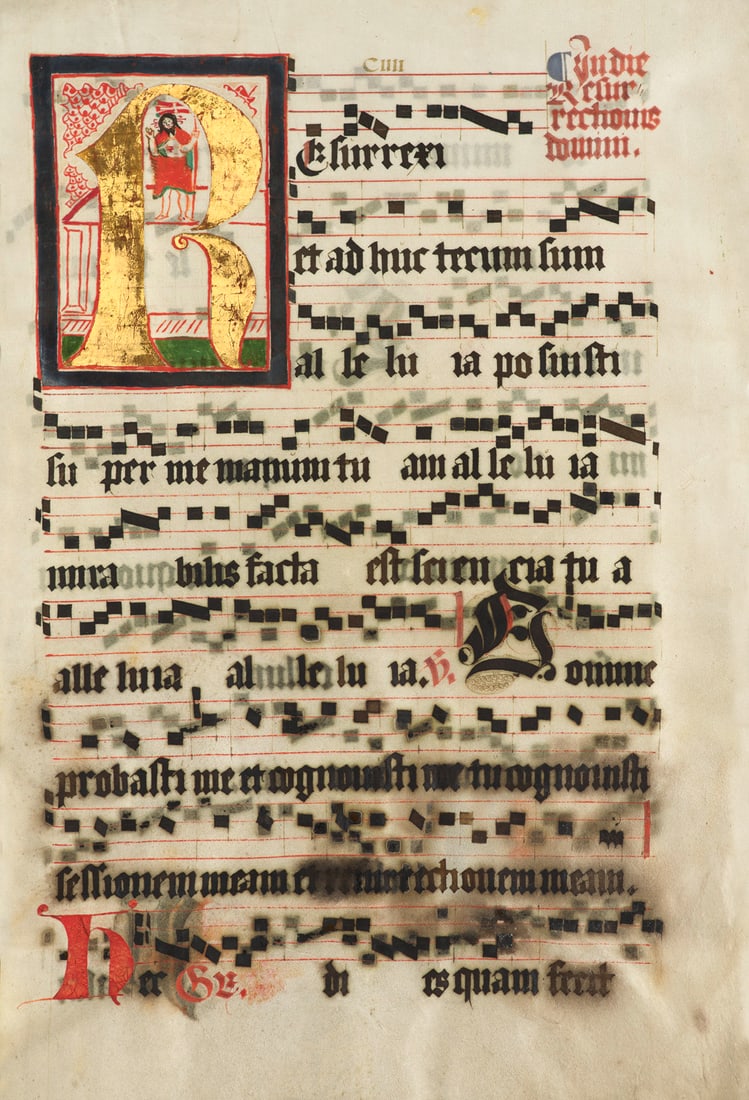 CIIII
In die
Resur-
rectionis
domini.
REsurrexi
et ad huc tecum sum
al le lu ia po suisti
su per me manum tu am al le lu ia
mira bilis facta est sci en cia tu a
alle luia al le lu ia. V. Domine
probasti me et cognouisti me tu cognouisti
sessionem meam et resurrectionem meam.
Hec Gr. di es quam fecit